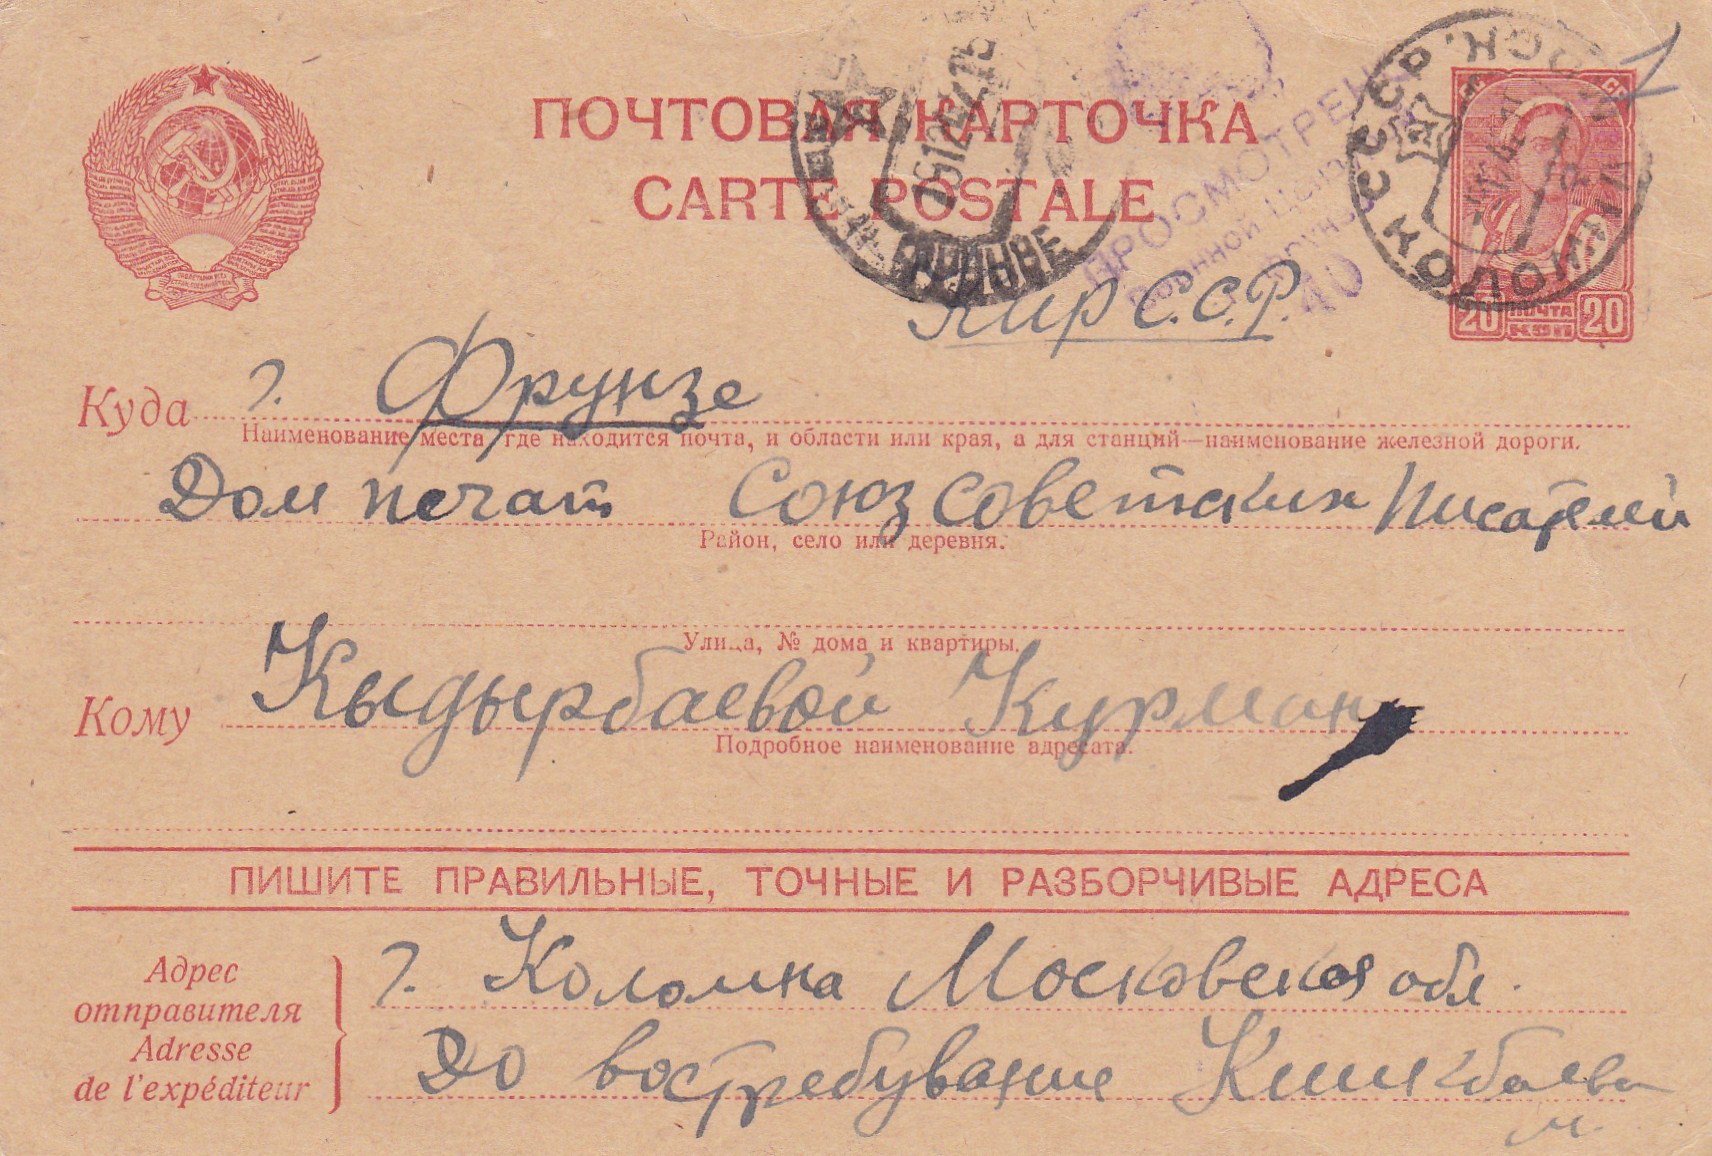 ПОЧТОВАЯ КАРТОЧКА
CARTE POSTALE
ПРОСМОТРЕНО
Военной
40
КОЛОМНА
ФРУНЗЕ
20 ПОЧТА 20
КОП
Кир С.С.Р.
Куда г. Фрунзе
Наименование места, где находится почта, и области или края, а для станций—наименование железной дороги.
Дом печат Союз советских писателей
Район, село или деревня.
Улица, № дома и квартиры.
Кому Кыдырбаевой Курман
Подробное наименование адресата.
ПИШИТЕ ПРАВИЛЬНЫЕ, ТОЧНЫЕ И РАЗБОРЧИВЫЕ АДРЕСА
Адрес отправителя
Adresse de l'expéditeur
г. Коломна Московская обл.
До востребувание
м.